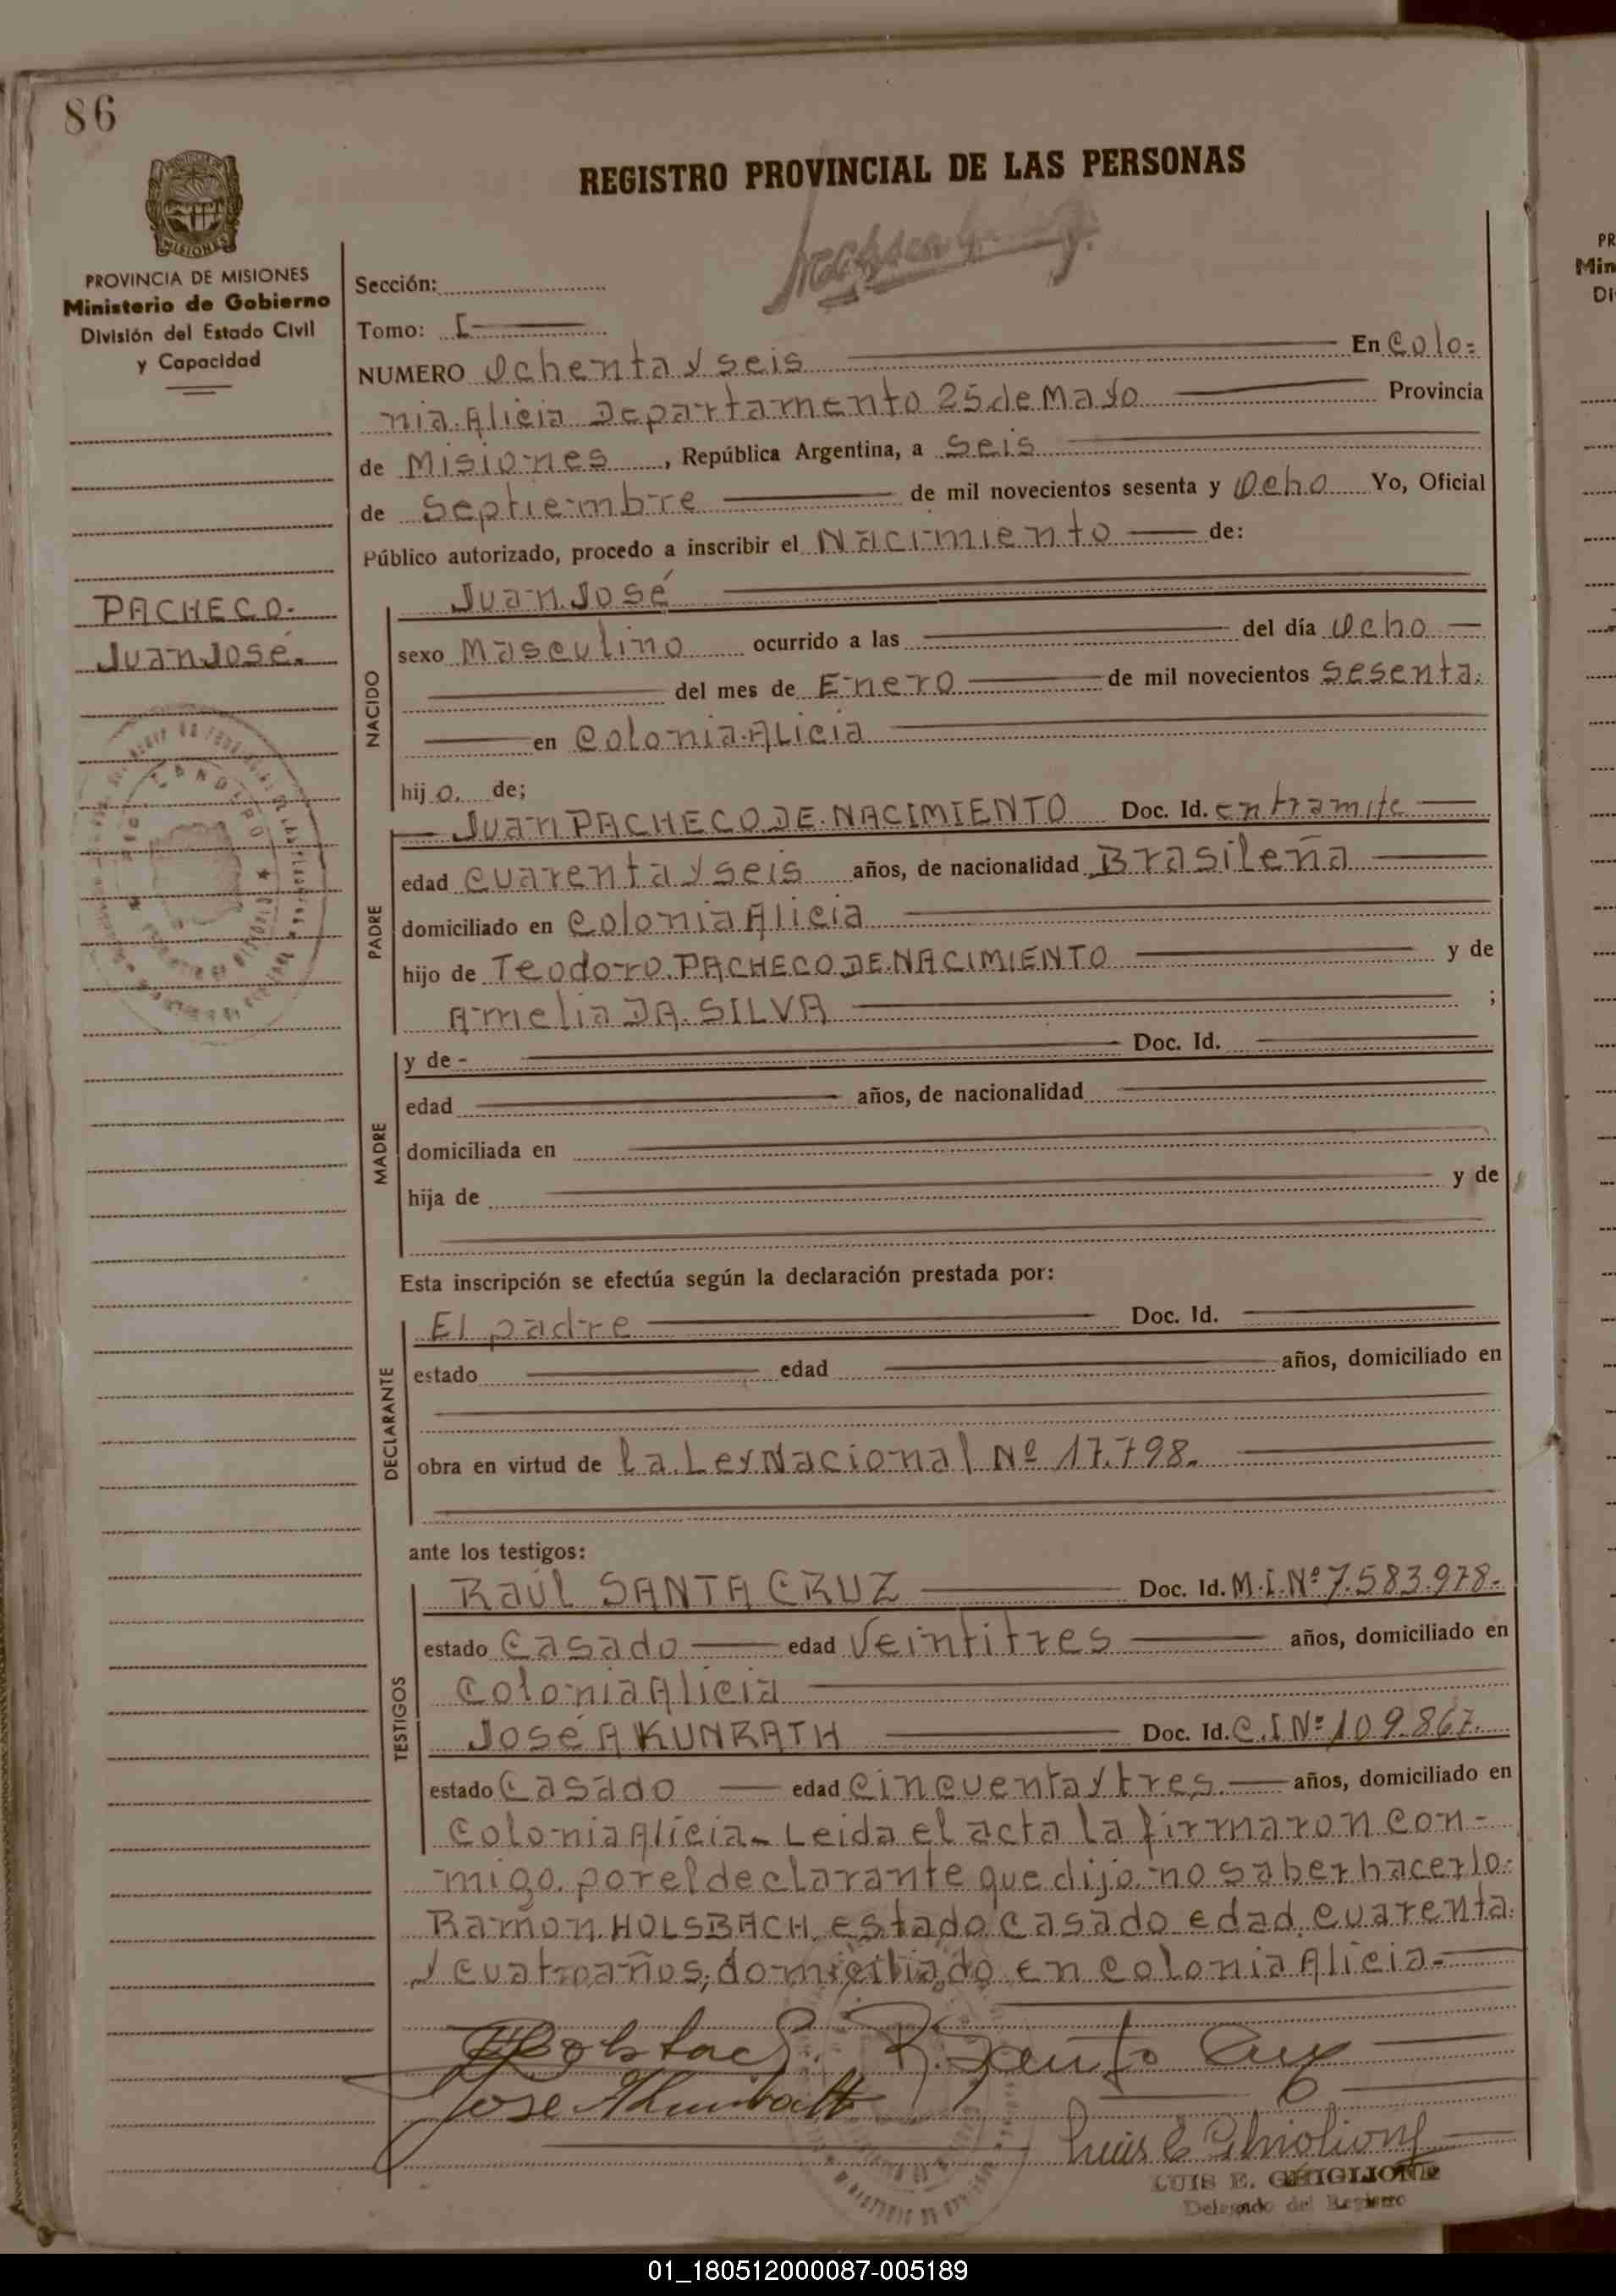 86
REGISTRO PROVINCIAL DE LAS PERSONAS
MISIONES
PROVINCIA DE MISIONES
Ministerio de Gobierno
División del Estado Civil
y Capacidad
PACHECO.
Juan José.
Sección:
Tomo: I
NUMERO Ochenta y seis En Colo=
nia Alicia Departamento 25 de Mayo Provincia
de Misiones, República Argentina, a Seis
de Septiembre de mil novecientos sesenta y Ocho Yo, Oficial
Público autorizado, procedo a inscribir el Nacimiento de:
NACIDO
Juan José
sexo Masculino ocurrido a las del día Ocho
del mes de Enero de mil novecientos Sesenta.
en Colonia Alicia
hijo. de;
PADRE
Juan PACHECO DE NACIMIENTO Doc. Id. en tramite
edad Cuarenta y seis años, de nacionalidad Brasileña
domiciliado en Colonia Alicia
hijo de Teodoro PACHECO DE NACIMIENTO y de
Amelia DA SILVA ;
MADRE
y de - Doc. Id.
edad años, de nacionalidad
domiciliada en
hija de y de
Esta inscripción se efectúa según la declaración prestada por:
DECLARANTE
El padre Doc. Id.
estado edad años, domiciliado en
obra en virtud de la Ley Nacional Nº 17.798.
ante los testigos:
TESTIGOS
Raúl SANTA CRUZ Doc. Id. M.I.Nº 7.583.978.
estado Casado edad Veintitres años, domiciliado en
Colonia Alicia
José A KUNRATH Doc. Id. C.I Nº 109.867.
estado Casado edad Cincuenta y tres. años, domiciliado en
Colonia Alicia. Leida el acta la firmaron con-
migo. por el declarante que dijo no saber hacerlo.
Ramón HOLSBACH, estado casado edad cuarenta
y cuatro años, domiciliado en Colonia Alicia.
R. Santa Cruz
Luis E Ghiglione
LUIS E. GHIGLIONE
Delegado del Registro
PR
Min
Di
01_180512000087-005189